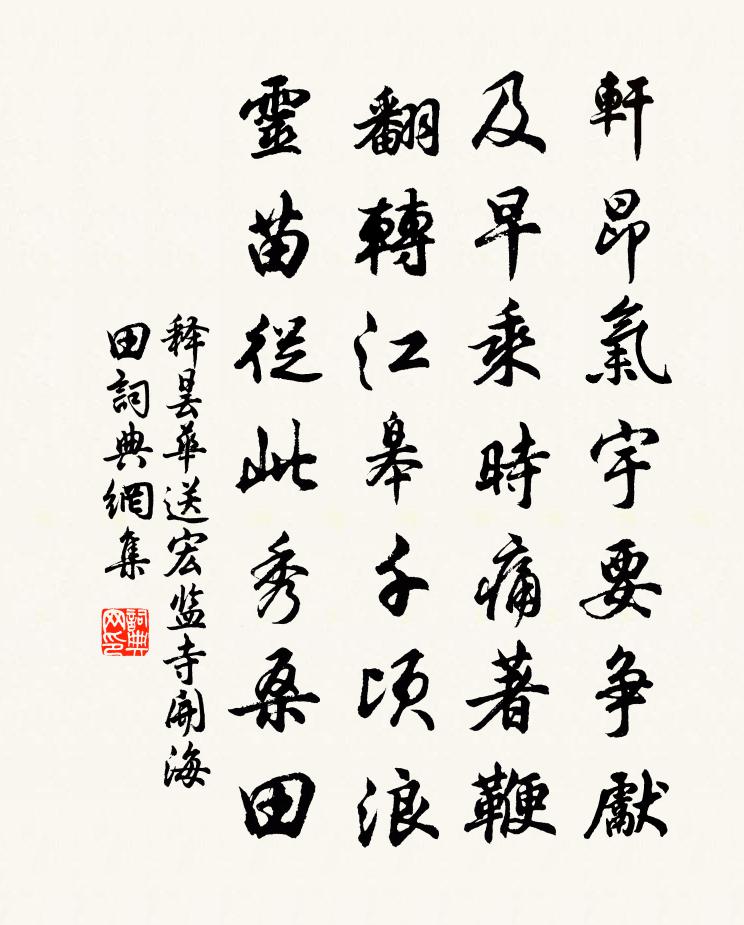 軒昂氣宇要争獻
及早乘時痛著鞭
翻轉江皋千頃浪
靈苗從此秀桑田
释曇華送宏监寺開海
田詞典網集
詞典网印